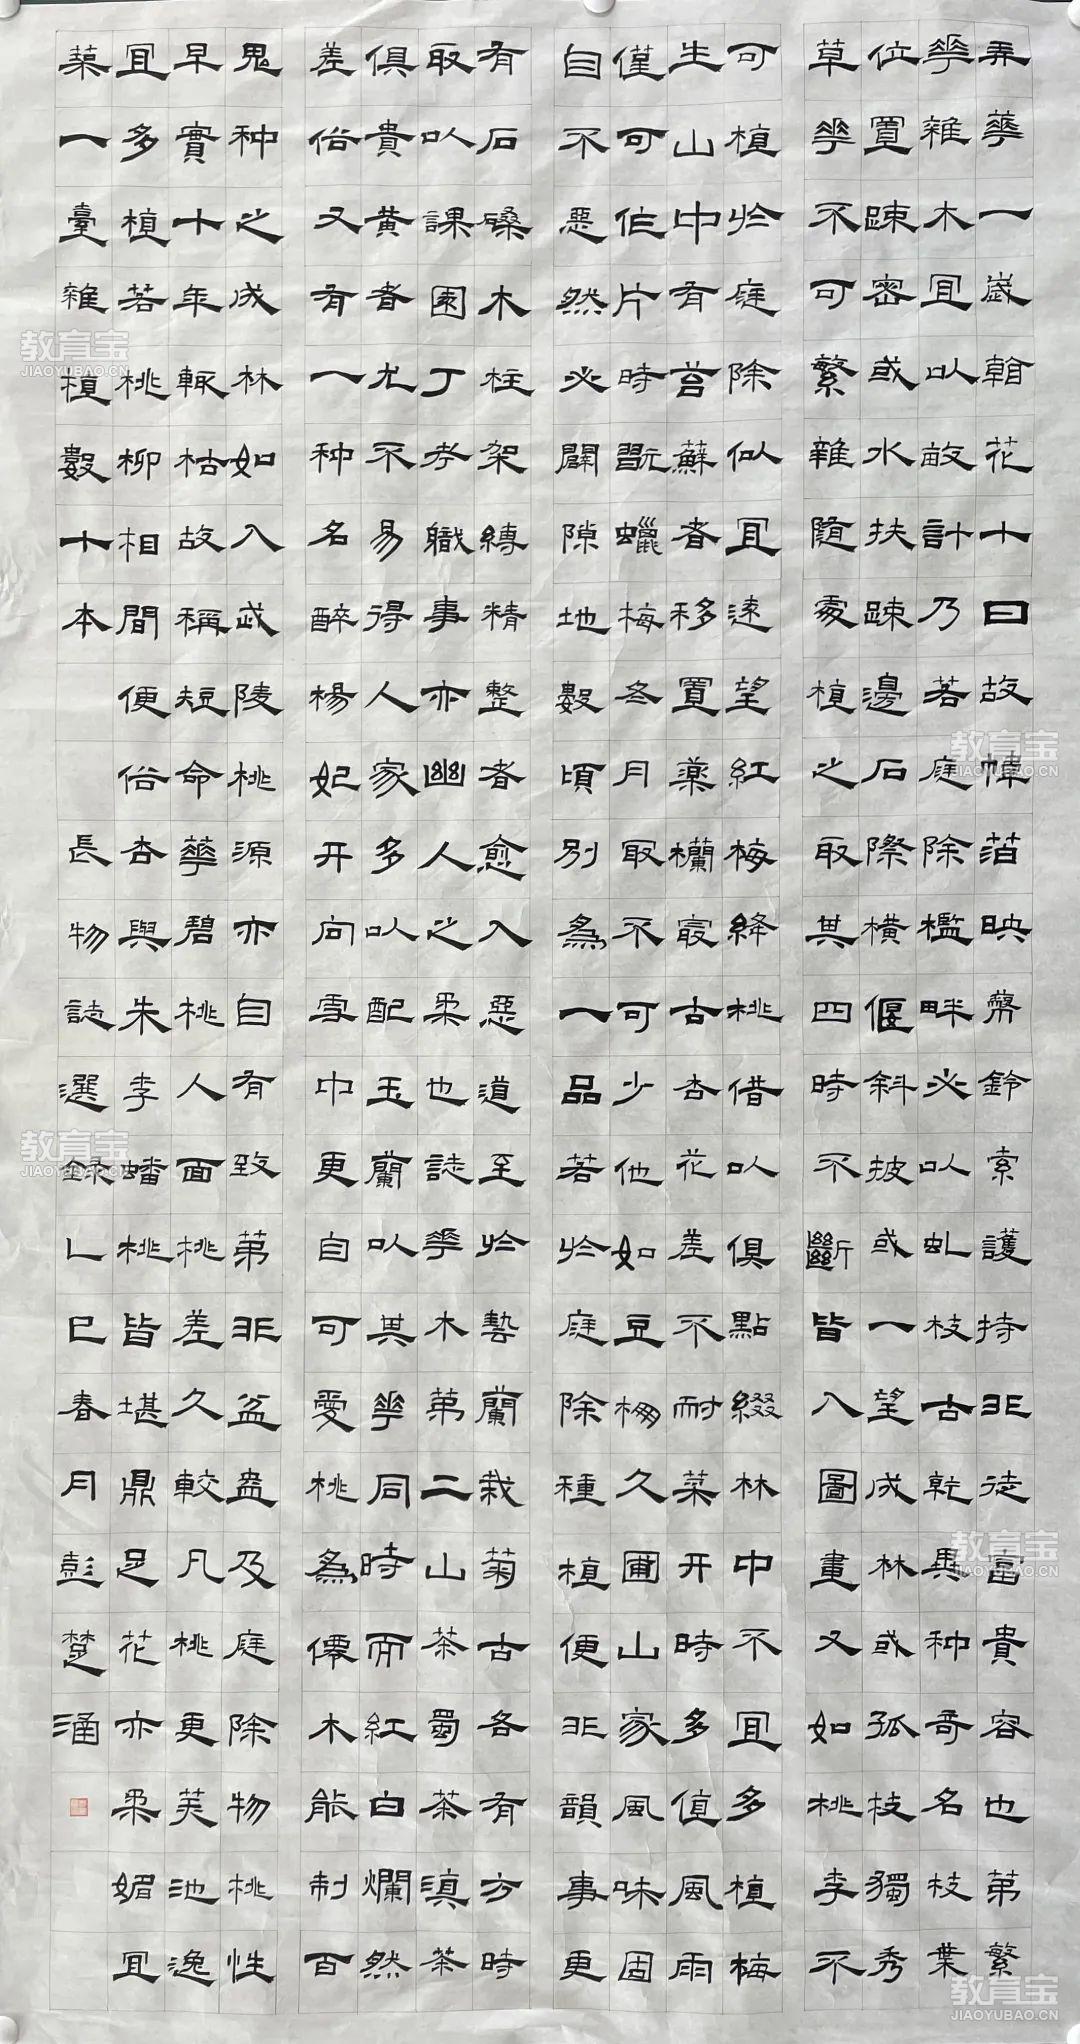 弄華一歲翰花十日故幃箔映幣鈴索護持非徒富貴容也第繁
華雜木宜以畝計乃若庭除檻畔必以虬枝古乾異种奇名枝葉
位置踈密或水扶踈邊石際橫偃斜披或一望成林或孤枝獨秀
草華不可繁雜隨處植之取其四時不斷皆入圖畫又如桃李不
可植於庭除似宜遠望紅梅絳桃借以俱點綴林中不宜多植梅
生山中有苔蘇者移置藥欄最古杏花差不耐菜开時多值風雨
僅可作片時翫蠟梅冬月取不可少他如豆棚久圃山家風味固
自不惡然必闢隙地數頃別為一品若於庭除種植便非韻事更
有石磉木柱架縛精整者愈入惡道至於藝蘭栽菊古各有方時
取以課園丁考職事亦幽人之柔也誌華木第二山茶蜀茶滇茶
俱貴黃者尤不易得人家多以配玉蘭以其華同時而紅白爛然
差俗又有一种名醉楊妃开向雪中更自可愛桃為僊木能制百
鬼种之成林如入武陵桃源亦自有致第非盆盎及庭除物桃性
早實十年輒枯故稱短命華碧桃人面桃差久較凡桃更美池逸
宜多植若桃柳相間便俗杏與朱李蟠桃皆堪鼎足花亦柔媚宜
築一臺雜植數十本
長物誌選錄乙巳春月彭楚涌
教育宝
JIAOYUBAO.CN
教育宝
JIAOYUBAO.CN
教育宝
JIAOYUBAO.CN
教育宝
JIAOYUBAO.CN
教育宝
JIAOYUBAO.CN